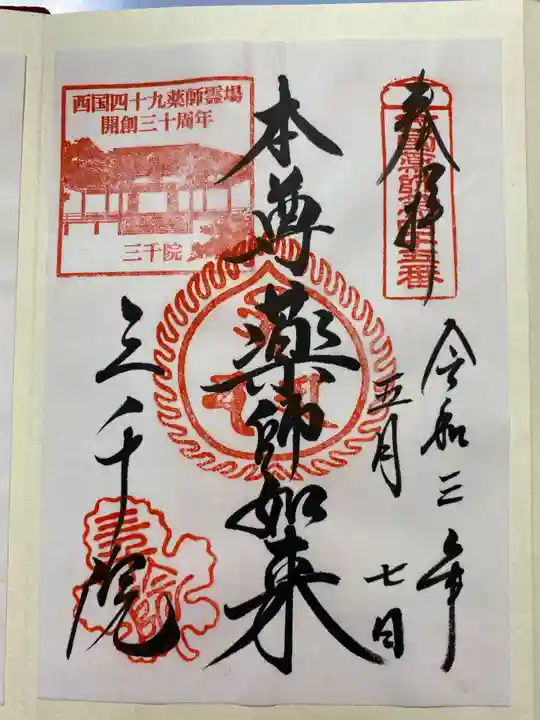 奉拝
令和三年
五月
七日
本尊薬師如来
三千院
西国四十九薬師霊場
開創三十周年
三千院